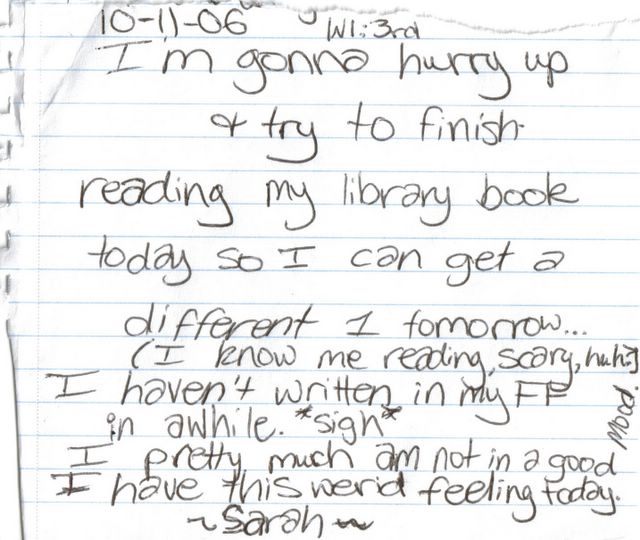 10-11-06 W1:3rd
I'm gonna hurry up
& try to finish
reading my library book
today so I can get a
different 1 tomorrow...
(I know me reading, scary, huh?)
I haven't written in my FF
in awhile. *sigh*
I pretty much am not in a good Mood
I have this weird feeling today.
~Sarah~